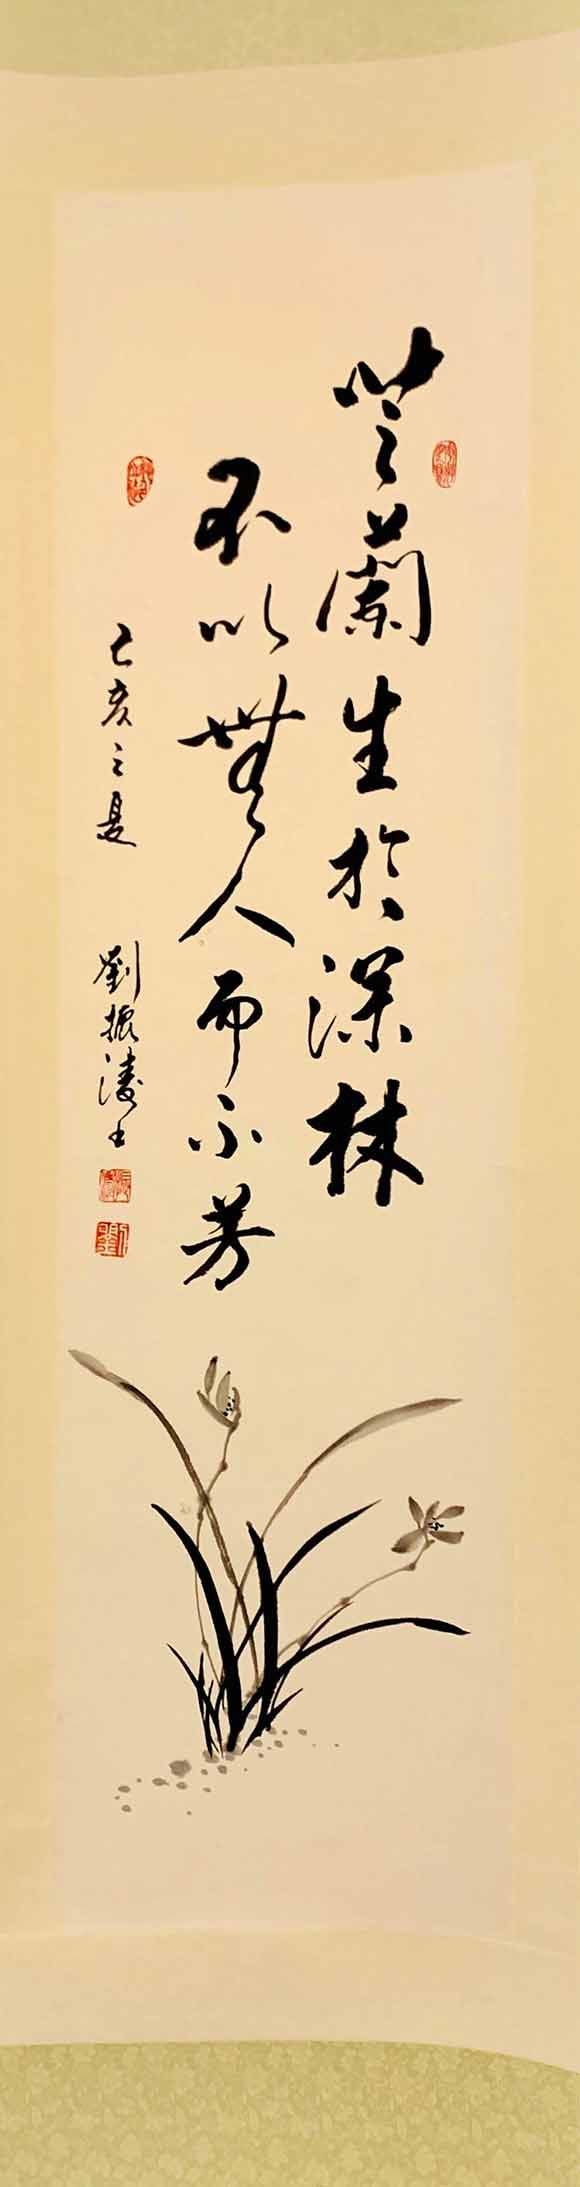 芝蘭生於深林
不以無人而不芳
己亥之夏
劉振濤书